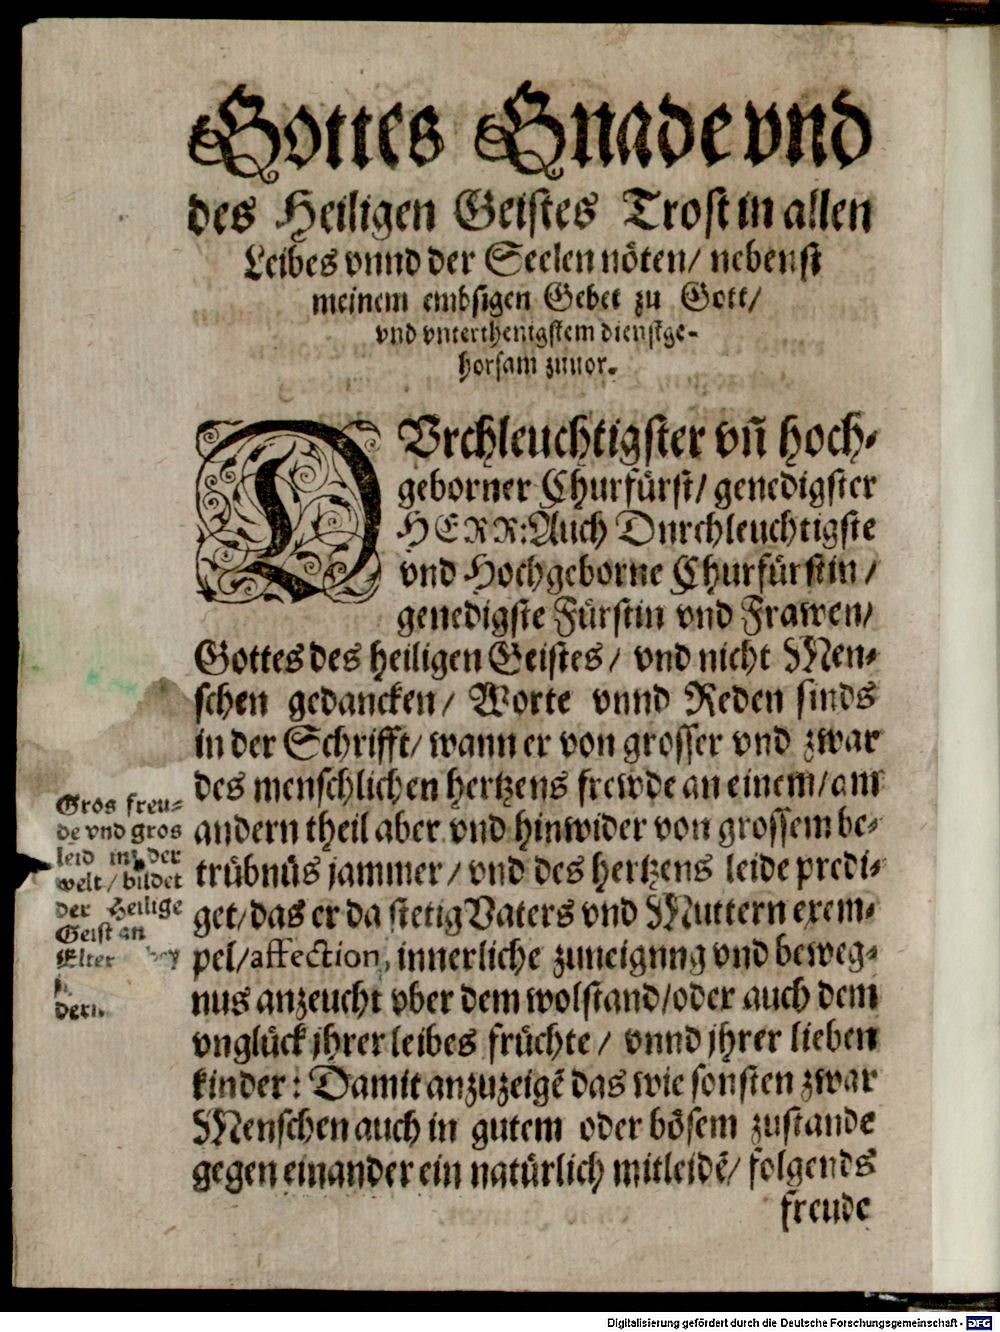 Gottes Gnade vnd
des Heiligen Geistes Trost in allen
Leibes vnnd der Seelen nöten/ nebenst
meinem embsigen Gebet zu Gott/
vnd vnterthenigstem dienstge-
horsam zuuor.
DVrchleuchtigster vn̄ hoch-
geborner Churfürst/ genedigster
HERR: Auch Durchleuchtigste
vnd Hochgeborne Churfürstin/
genedigste Fürstin vnd Frawen/
Gottes des heiligen Geistes/ vnd nicht Men-
schen gedancken/ Worte vnnd Reden sinds
in der Schrifft/ wann er von grosser vnd zwar
des menschlichen hertzens frewde an einem/ am
andern theil aber vnd hinwider von grossem be-
trübnüs jammer/ vnd des hertzens leide predi-
get/ das er da stetig Vaters vnd Muttern exem-
pel/ affection, innerliche zuneignng vnd beweg-
nus anzeucht vber dem wolstand/ oder auch dem
vnglück jhrer leibes früchte/ vnnd jhrer lieben
kinder: Damit anzuzeigē das wie sonsten zwar
Menschen auch in gutem oder bösem zustande
gegen einander ein natürlich mitleidē/ folgends
freude
Gros freu-
de vnd gros
leid in der
welt/ bildet
der Heilige
Geist an
Elter
dern
Digitalisierung gefördert durch die Deutsche Forschungsgemeinschaft - DFG